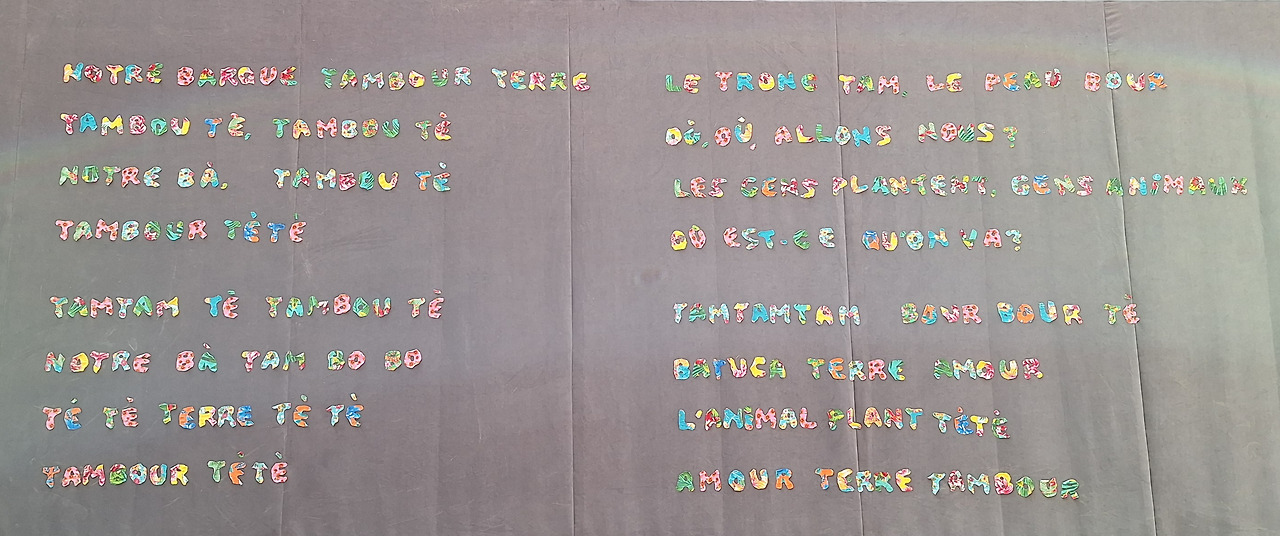 NOTRE BARQUE TAMBOUR TERRE
TAMBOU TÈ, TAMBOU TÈ
NOTRE BÀ, TAMBOU TÈ
TAMBOUR TÈTÈ
TAMTAM TÈ TAMBOU TÈ
NOTRE BÀ TAM BO BO
TÈ TÈ TERRE TÈ TÈ
TAMBOUR TÈTÈ
LE TRONC TAM, LE PEAU BOUR
OÈ, OÙ ALLONS NOUS?
LES GENS PLANTENT, GENS ANIMAUX
OÙ EST-CE QU'ON VA?
TAMTAMTAM BOUR BOUR TÈ
BATUCA TERRE AMOUR
L'ANIMAL PLANT TÈTÈ
AMOUR TERRE TAMBOUR